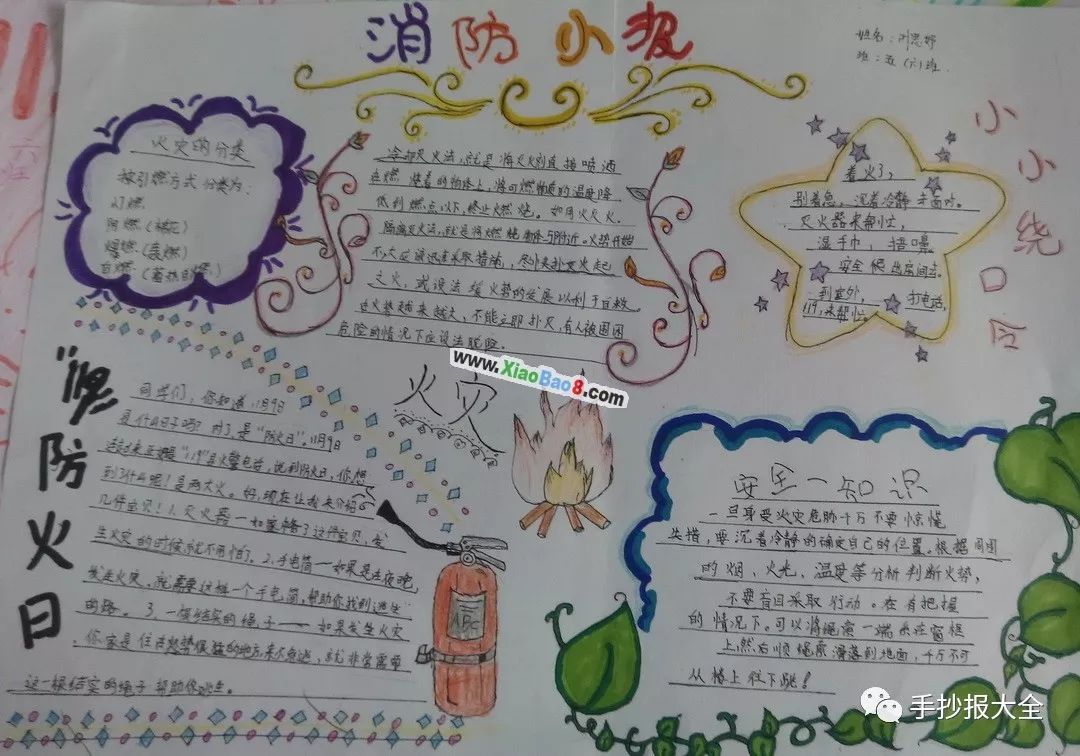 消防小报
姓名：叶思妤
班：五（六）班
火灾的分类
按引燃方式分类为：
灯燃
阴燃（棉花）
爆燃（轰燃）
自燃（蓄热自燃）
冷却灭火法，就是将灭火剂直接喷洒
在燃烧着的物体上，将可燃物质的温度降
低到燃点以下，终止燃烧。如用水灭火。
隔离灭火法，就是将燃烧物体与附近。火势开始
不大应迅速采取措施，尽快来扑灭火起
之火，或设法缓火势的发展以利于自救。
在火势越来越大，不能立即扑灭，有人被围困
危险的情况下应设法脱险。
小小绕口令
着火了，
别着急，沉着冷静来面对。
灭火器来帮忙，
湿手巾，捂嘴鼻
安全候出房间去。
到室外，打电话，
119，来帮忙。
www.XiaoBao8.com
火灾
防火日
同学们，你知道，11月9日
是什么日子吗？对了，是“防火日”。11月9日
“119”是火警电话，说到防火日，你想
到了什么呢！是两大火。好，现在让我来介绍
几件宝贝！1、灭火器一如果有了这件宝贝，发
生火灾的时候就不用怕了。2、手电筒一如果是在夜晚，
发生火灾，就需要这桩一个手电筒，帮助你找到逃生
的路。3、一根结实的绳子——如果发生火灾
你家是住在的地方来不及逃，就非常需要
这一根结实的绳子帮助你逃生。
ABC
安全一知识
一旦身受火灾危胁千万不要惊慌
失措，要沉着冷静的确定自己的位置。根据周围
的烟、火光、温度等分析判断火势，
不要盲目采取行动。在有把握
的情况下。可以将绳索一端系在窗框
上，然后顺绳索滑落到地面，千万不可
从楼上往下跳！
手抄报大全